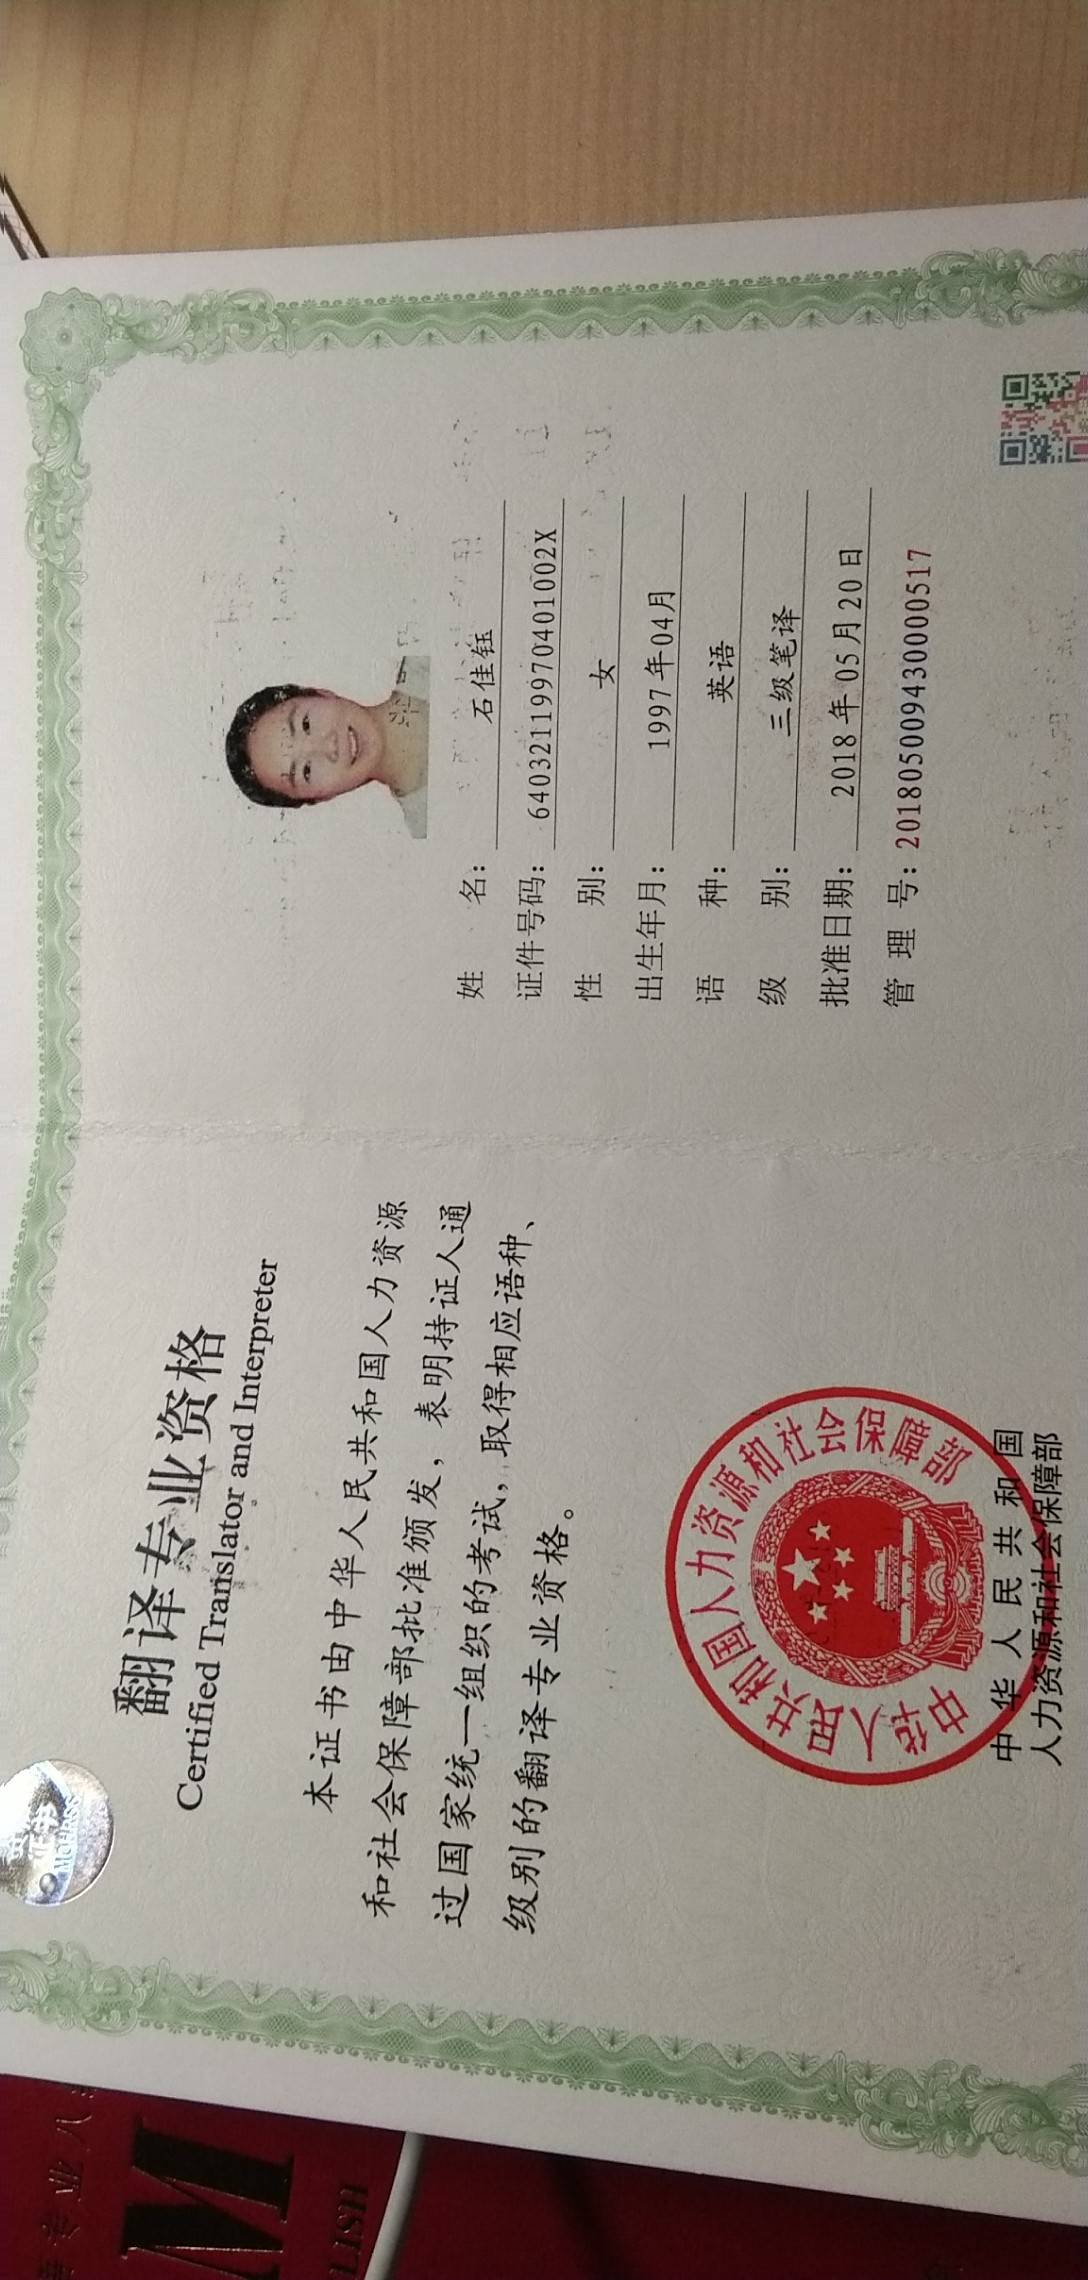 翻译专业资格
Certified Translator and Interpreter
本证书由中华人民共和国人力资源
和社会保障部批准颁发，表明持证人通
过国家统一组织的考试，取得相应语种、
级别的翻译专业资格。
中华人民共和国人力资源和社会保障部
中华人民共和国
人力资源和社会保障部
姓名：石佳钰
证件号码：64032119970401002X
性别：女
出生年月：1997年04月
语种：英语
级别：三级笔译
批准日期：2018年05月20日
管理号：20180500943000517
M